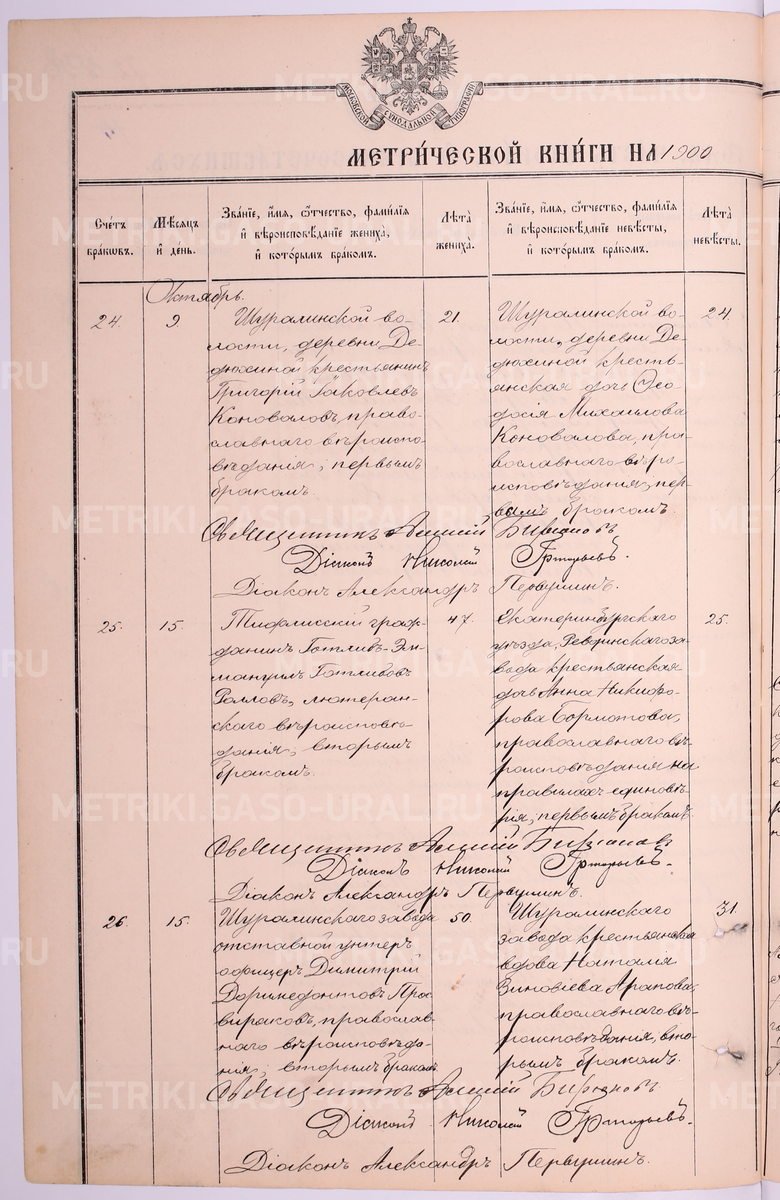 МОСКОВСКОЙ СѴНОДАЛЬНОЙ ТИПОГРАФІИ
МЕТРИ́ЧЕСКОЙ КНИ́ГИ НА 1900
Сче́тъ бра́ковъ.
Мѣ́сяцъ и҆ де́нь.
Зва́нїе, и҆́мя, ѻ҆́тчество, фами́лїя
и҆ вѣроисповѣ́данїе жениха̀,
и҆ кото́рымъ бра́комъ.
Лѣ́та жениха̀.
Зва́нїе, и҆́мя, ѻ҆́тчество, фами́лїя
и҆ вѣроисповѣ́данїе невѣ́сты,
и҆ кото́рымъ бра́комъ.
Лѣ́та невѣ́сты.
Октябрь.
24.
9.
Шуралинской во-
лости, деревни Де-
дюхиной крестьянинъ
Григорій Іаковлевъ
Коноваловъ, право-
славнаго вѣроиспо-
вѣданія, первымъ
бракомъ.
21.
Шуралинской во-
лости, деревни Де-
дюхиной кресть-
янская дочь Ѳео-
досія Михаилова
Коновалова, пра-
вославнаго вѣро-
исповѣданія, пер-
вымъ бракомъ.
24.
Священникъ Алексій
Діаконъ Николай Григорьевъ.
Діаконъ Александръ Первушинъ.
25.
15.
Тифлисскій граж-
данинъ Готлибъ-Эм-
мануилъ Готлибовъ
Ролловъ, лютеран-
скаго вѣроисповѣ-
данія, вторымъ
бракомъ.
47.
Екатеринбургскаго
уѣзда, Ревдинскаго за-
вода крестьянская
дочь Анна Никифо-
рова Бормотова,
православнаго вѣ-
роисповѣданія на
правилахъ единовѣ-
рія, первымъ бракомъ.
25.
Священникъ Алексій
Діаконъ Николай Григорьевъ.
Діаконъ Александръ Первушинъ.
26.
15.
Шуралинскаго завода
отставной унтеръ
офицеръ Димитрій
Доримедонтовъ Про-
виряковъ, православ-
наго вѣроисповѣда-
нія, вторымъ бракомъ.
50.
Шуралинскаго
завода крестьянская
вдова Наталія
Зиновіева Арапова,
православнаго вѣ-
роисповѣданія, вто-
рымъ бракомъ.
31.
Священникъ Алексій
Діаконъ Николай Григорьевъ.
Діаконъ Александръ Первушинъ.
METRIKI.GASO-URAL.RU